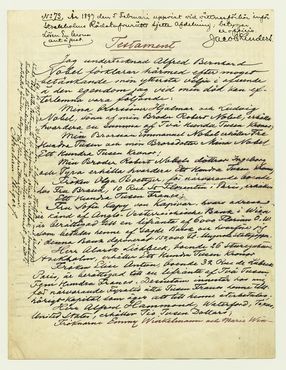 No 73. År 1897 den 5 Februari uppvist vid vittnesförhör inför
Stockholms Rådstufvurätts sjette Afdelning, betygar
Testament
Jag undertecknad Alfred Bernhard
Nobel förklarar härmed efter moget
betänkande min yttersta vilja i afseende
å den egendom jag vid min död kan ef-
terlemna vara följande:
Mina Brorsöner Hjalmar och Ludvig
Nobel, söner af min Broder Robert Nobel, erhålla
hvardera en summa af Två Hundra Tusen Kronor;
Min Brorson Emmanuel Nobel erhåller Tre
Hundra Tusen och min Brorsdotter Mina Nobel
Ett Hundra Tusen Kronor;
Min Broder Robert Nobels döttrar Ingeborg
och Tyra erhålla hvardera Ett Hundra Tusen Kronor;
Fröken Olga Boettger, för närvarande boende
hos Fru Brand, 10 Rue St Florentin, Paris, erhåller
Ett Hundra Tusen Francs;
Fru Sofie Kapy von Kapivar, hvars adress
är känd af Anglo-Oesterreichische Bank i Wien
är berättigad till en lifränta af 6000 Florins Ö.W.
som betalas henne af sagda Bank och hvarför jag i
denna Bank deponerat 150,000 Fl. i Ungerska Statspapper;
Herr Alarik Liedbeck, boende 26 Sturegatan,
Stockholm, erhåller Ett Hundra Tusen Kronor;
Fröken Elise Antun, boende 32 Rue de Lubeck,
Paris, är berättigad till en lifränta af Två Tusen
Fem Hundra Francs. Dessutom innestår hos mig
för närvarande Fyratio Åtta Tusen Francs henne till-
hörigt kapital som äger att till henne återbetalas;
Herr Alfred Hammond, Waterford, Texas,
United States, erhåller Tio Tusen Dollars;
Fröknarne Emmy Winkelmann och Marie Win-